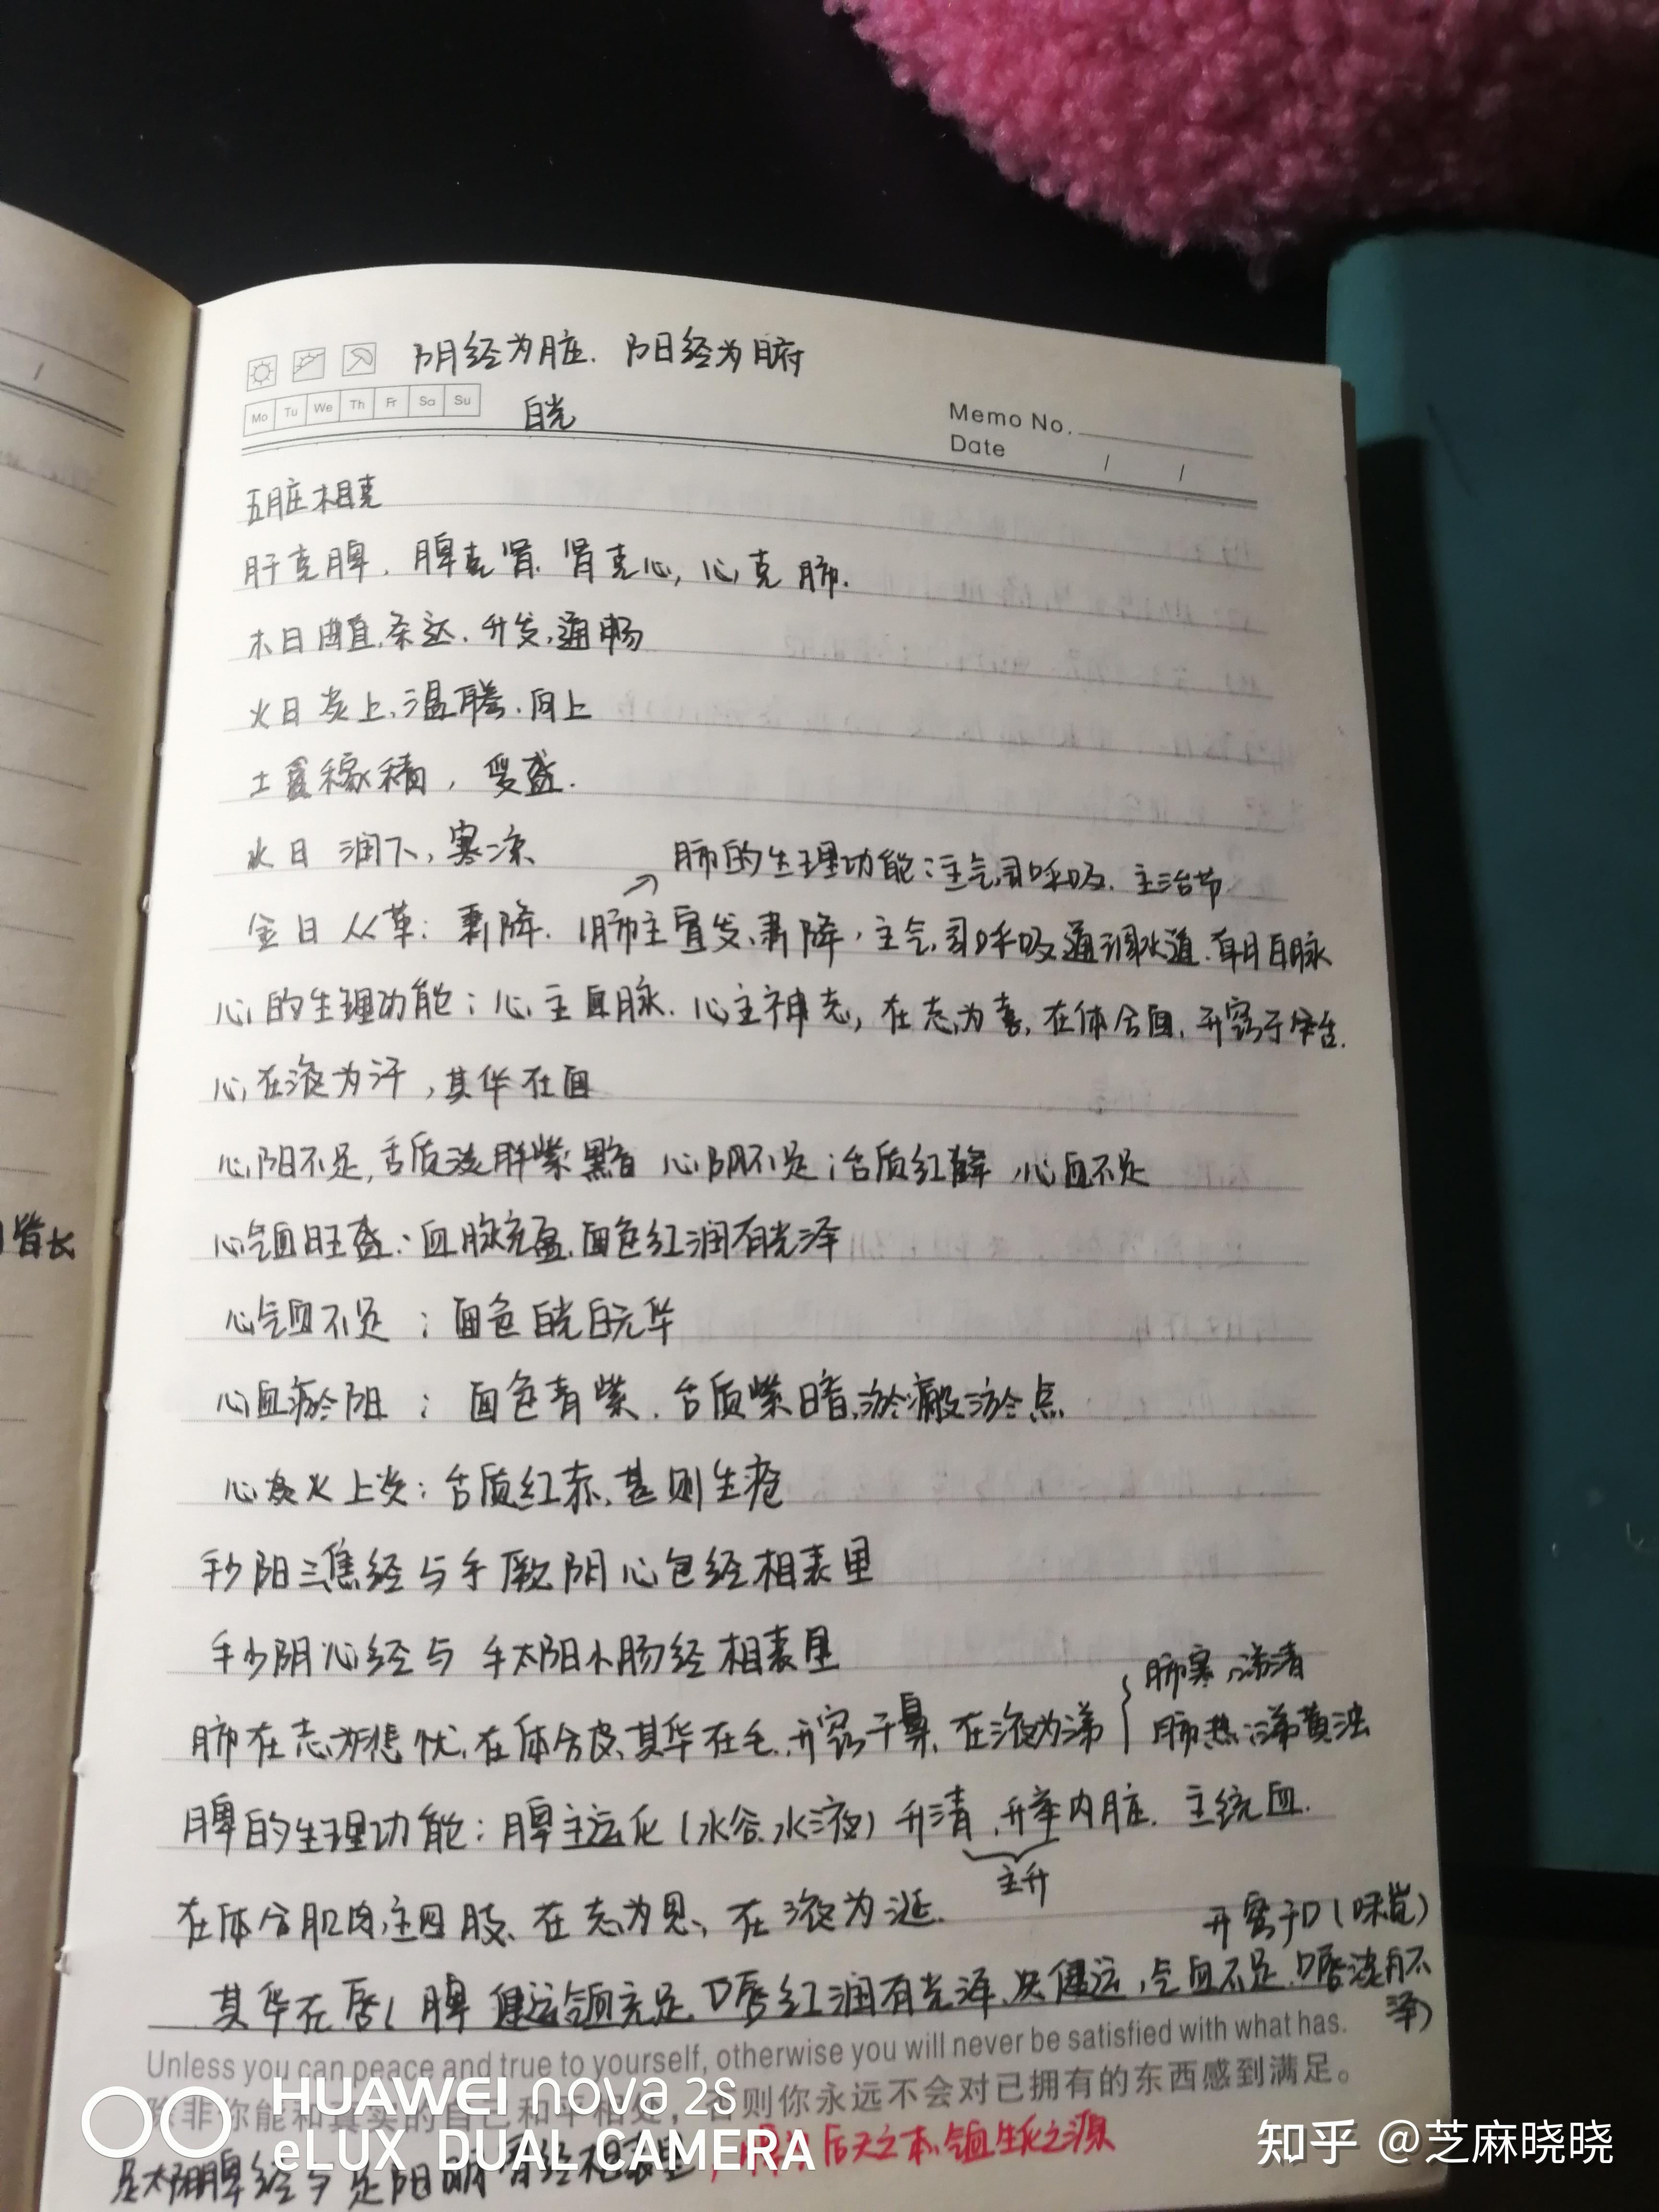 阴经为脏、阳经为腑
Mo Tu We Th Fr Sa Su
晄
Memo No.
Date / /
五脏相克
肝克脾、脾克肾、肾克心,心克肺.
木曰曲直、条达、升发、通畅
火曰炎上、温腾、向上
土爰稼穑,受盛.
水曰 润下,寒凉
肺的生理功能:主气司呼吸、主治节
金曰从革:肃降. 肺主宣发、肃降,主气,司呼吸通调水道、朝百脉
心的生理功能:心主血脉、心主神志,在志为喜,在体合面,开窍于舌.
心在液为汗,其华在面
心阳不足,舌质淡胖紫黯 心阴不足;舌质红 心血不足
心气血旺盛:血脉充盈、面色红润有光泽
心气血不足:面色晄白无华
心血瘀阻:面色青紫、舌质紫暗、淤瘢淤点
心火上炎:舌质红赤、甚则生疮
手少阳三焦经与手厥阴心包经相表里
手少阴心经与手太阳小肠经相表里
肺寒,涕清
肺在志为悲忧、在体合皮、其华在毛、开窍于鼻、在液为涕
肺热,涕黄浊
脾的生理功能:脾主运化(水谷、水液)升清、升举内脏. 主统血.
主升
在体合肌肉,主四肢、在志为思、在液为涎.
开窍于口(味觉)
其华在唇(脾健运气血充足、口唇红润有光泽、失健运,气血不足、口唇淡不
泽)
Unless you can peace and true to yourself, otherwise you will never be satisfied with what has.
除非你能和真实的自己和平相处,否则你永远不会对已拥有的东西感到满足。
HUAWEI nova 2s
eLUX DUAL CAMERA
足太阴脾经与足阳明胃经相表里
后天之本、气血生化之源
知乎 @芝麻晓晓
肾长